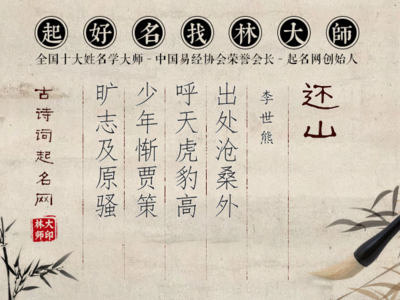 起好名找林大師
全国十大姓名学大师-中国易经协会荣誉会长-起名网创始人
还山
李世熊
出处沧桑外
呼天虎豹高
少年惭贾策
旷志及原骚
古诗词起名网
大印
林师